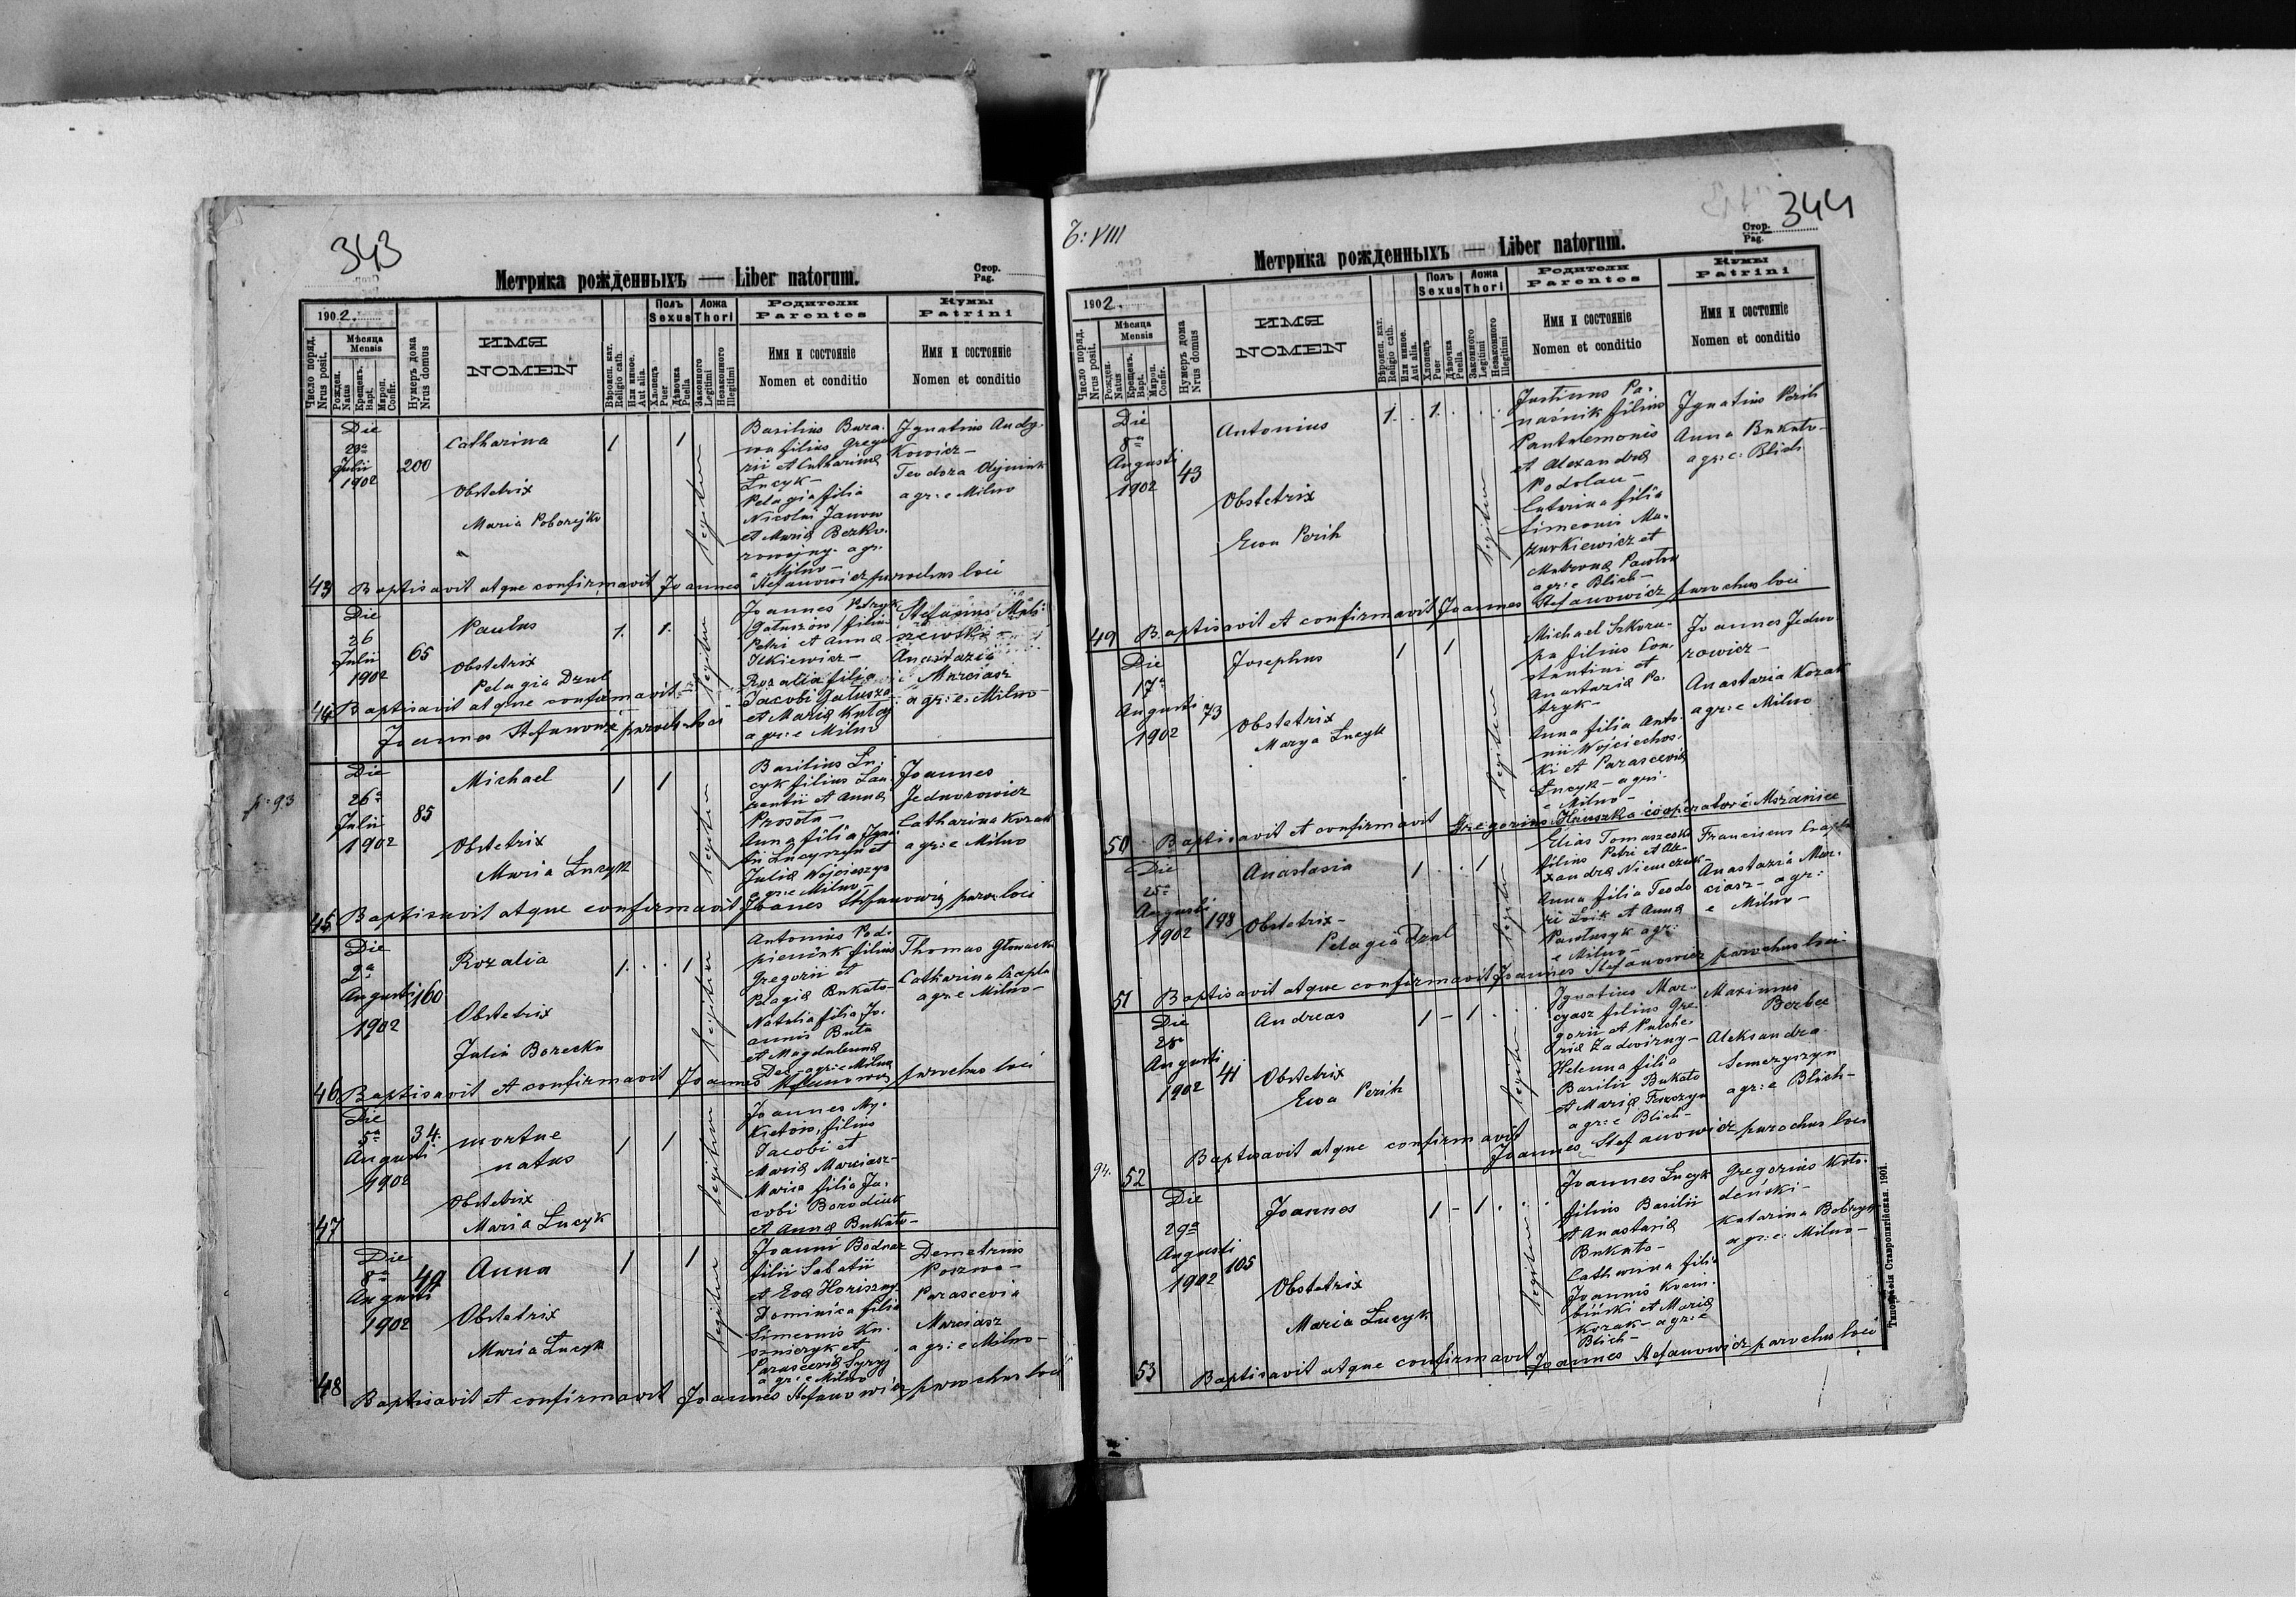 343
Метрика рожденныхъ — Liber natorum.
Стор.
Pag.
1902.
Мѣсяца
Mensis
Число поряд.
Nrus posit.
Рожден.
Natus
Крещенъ.
Bapt.
Миропом.
Confir.
Нумеръ дома
Nrus domus
ИМЯ
NOMEN
Вѣроисп. кат.
Religio cath.
Или иное.
Aut alia.
Полъ
Sexus
Хлопецъ
Puer
Дѣвочка
Puella
Ложа
Thori
Законного
Legitimi
Незаконного
Illegitimi
Родители
Parentes
Имя и состояніе
Nomen et conditio
Кумы
Patrini
Имя и состояніе
Nomen et conditio
Die
Julii
1902
200
Catharina
1
1
legitim
Obstetrix
Maria Poborejko
Basilius Bura-
filius Grego
rii et Catharina
Łucyk-
Pelagia filia
Nicolai Janow
et Maria
agr.
e Milno-
Ignatius Andy-
kowicz-
Teodora Olijnik
agr: e Milno
43 Baptisavit atque confirmavit Joannes Stefanowicz parochus loci
Die
26
Julii
1902
65
Paulus
1.
1.
legitim
Obstetrix
Pelagia Dzul
Joannes Petryk
/Gałuszów/ filius
Petri et Anna
Ickiewicz-
Rozalia filia
Jacobi Gałusza
et Maria Kutny
agr: e Milno
Stefanus
Anastazia
Marciasz
agr: e: Milno-
44 Baptisavit atque confirmavit-
Joannes Stefanowicz paroch. loci
p. 93
Die
26a
Julii
1902
85
Michael
1
1
legitim
Obstetrix
Maria Łucyk
Basilius Łu-
cyk filius Lau-
rentii et Anna
Prosota-
Anna filia Igna
tii Łucyszyn et
Julia Wojcieszyn
agr: e Milno-
Joannes
Jednorowicz
Catharina Kozak
agr: e Milno
45 Baptisavit atque confirmavit Joanes Stefanowicz paroc: loci
Die
9a
Augusti
1902
160
Rozalia
1.
1
legitim
Obstetrix
Julia Borecka
Antonius Pod-
pieniuk filius
Gregorii et
Pelagia Bukato-
Natalia filia Jo-
annis Buta
et Magdalena
Der- agr: e Milno
Thomas Głowacki
Catharina Czapla
agr: e Milno-
46 Baptisavit et confirmavit Joannes Stefanowicz parochus loci
Die
5a
Augusti
1902
34.
mortue
natus
1
1
legitim
Obstetrix
Maria Łucyk
Joannes My-
kietow, filius
Jacobi et
Maria Marciasz-
Maria filia Ja-
cobi Borodiuk
et Anna Bukato-
47
Die
8a
Augusti
1902
49
Anna
1
1
legitim
Obstetrix
Maria Łucyk
Joanni Bodnar
filii Sabatii
et Eva Horiszny-
Dominica filia
Simeonis Ku-
sznieryk et
Parascevia Syryj
agr: e Milno
Demetrius
Poszwa-
Parascevia
Marciasz
agr: e Milno-
48
Baptisavit et confirmavit Joannes Stefanowicz parochus loci
T: VIII
344
Метрика рожденныхъ — Liber natorum.
Стор.
Pag.
1902.
Мѣсяца
Mensis
Число поряд.
Nrus posit.
Рожден.
Natus
Крещенъ.
Bapt.
Миропом.
Confir.
Нумеръ дома
Nrus domus
ИМЯ
NOMEN
Вѣроисп. кат.
Religio cath.
Или иное.
Aut alia.
Полъ
Sexus
Хлопецъ
Puer
Дѣвочка
Puella
Ложа
Thori
Законного
Legitimi
Незаконного
Illegitimi
Родители
Parentes
Имя и состояніе
Nomen et conditio
Кумы
Patrini
Имя и состояніе
Nomen et conditio
Die
8a
Augusti
1902
43
Antonius
1.
1.
legitim
Obstetrix
Ewa Perih
Justinus Pa-
naśnik filius
Pantalemonis
et Alexandra
Podolan-
Catarina filia
Simeonis Ma-
zurkiewicz et
Matrona Pawłow
agr: e Blich-
Ignatius Perih
Anna Bukato-
agr: e: Blich
49 Baptisavit et confirmavit Joannes Stefanowicz parochus loci
Die
17a
Augusti
1902
73
Josephus
1
1
legitim
Obstetrix
Marya Łucyk
Michael Szkora-
pa filius Con-
stantini et
Anastazia Pe-
tryk-
Anna filia Anto-
nii Wojciechow-
ki et Parascevia
Łucyk- agri-
e Milno-
Joannes Jedno
rowicz-
Anastazia Kozak
agr: e Milno
50 Baptisavit et confirmavit Gregorius Hruszka cooperator e Mszaniec
Die
25a
Augusti
1902
198
Anastasia
1
1
legitim
Obstetrix-
Pelagia Dzul
Elias Tomaszecki
filius Petri et Ale-
xandra Niemczuk-
Anna filia Teodo
ri Łoik et Anna
Pawłusyk agr:
e Milno-
Franciscus Czapla
Anastazia Mar-
ciasz- agr:
e Milno-
51 Baptisavit atque confirmavit Joannes Stefanowicz parochus loci
Die
28a
Augusti
1902
41
Andreas
1
1
legitim
Obstetrix
Ewa Perih
Ignatius Mar-
cyasz filius Gre-
gorii et Pulche-
ria Zadwirny-
Helenna filia
Basilii Bukato
et Maria
agr: e Blich-
Maximus
Berbec
Aleksandra
Semczyszyn
agr: e Blich-
52 Baptisavit atque confirmavit
Joannes Stefanowicz parochus loci
94.
Die
29a
Augusti
1902
105
Joannes
1
1
legitim
Obstetrix
Maria Łucyk
Joannes Łucyk
filius Basilii
et Anastasia
Bukato-
Catherina filia
Joannis Krem-
biński et Maria
Kozak- agr: e
Blich-
Gregorius Koło-
deński-
Katarina Bobryk
agr: e: Milno-
53 Baptisavit atque confirmavit Joannes Stefanowicz parochus loci
Типографія Ставропигійская. 1901.